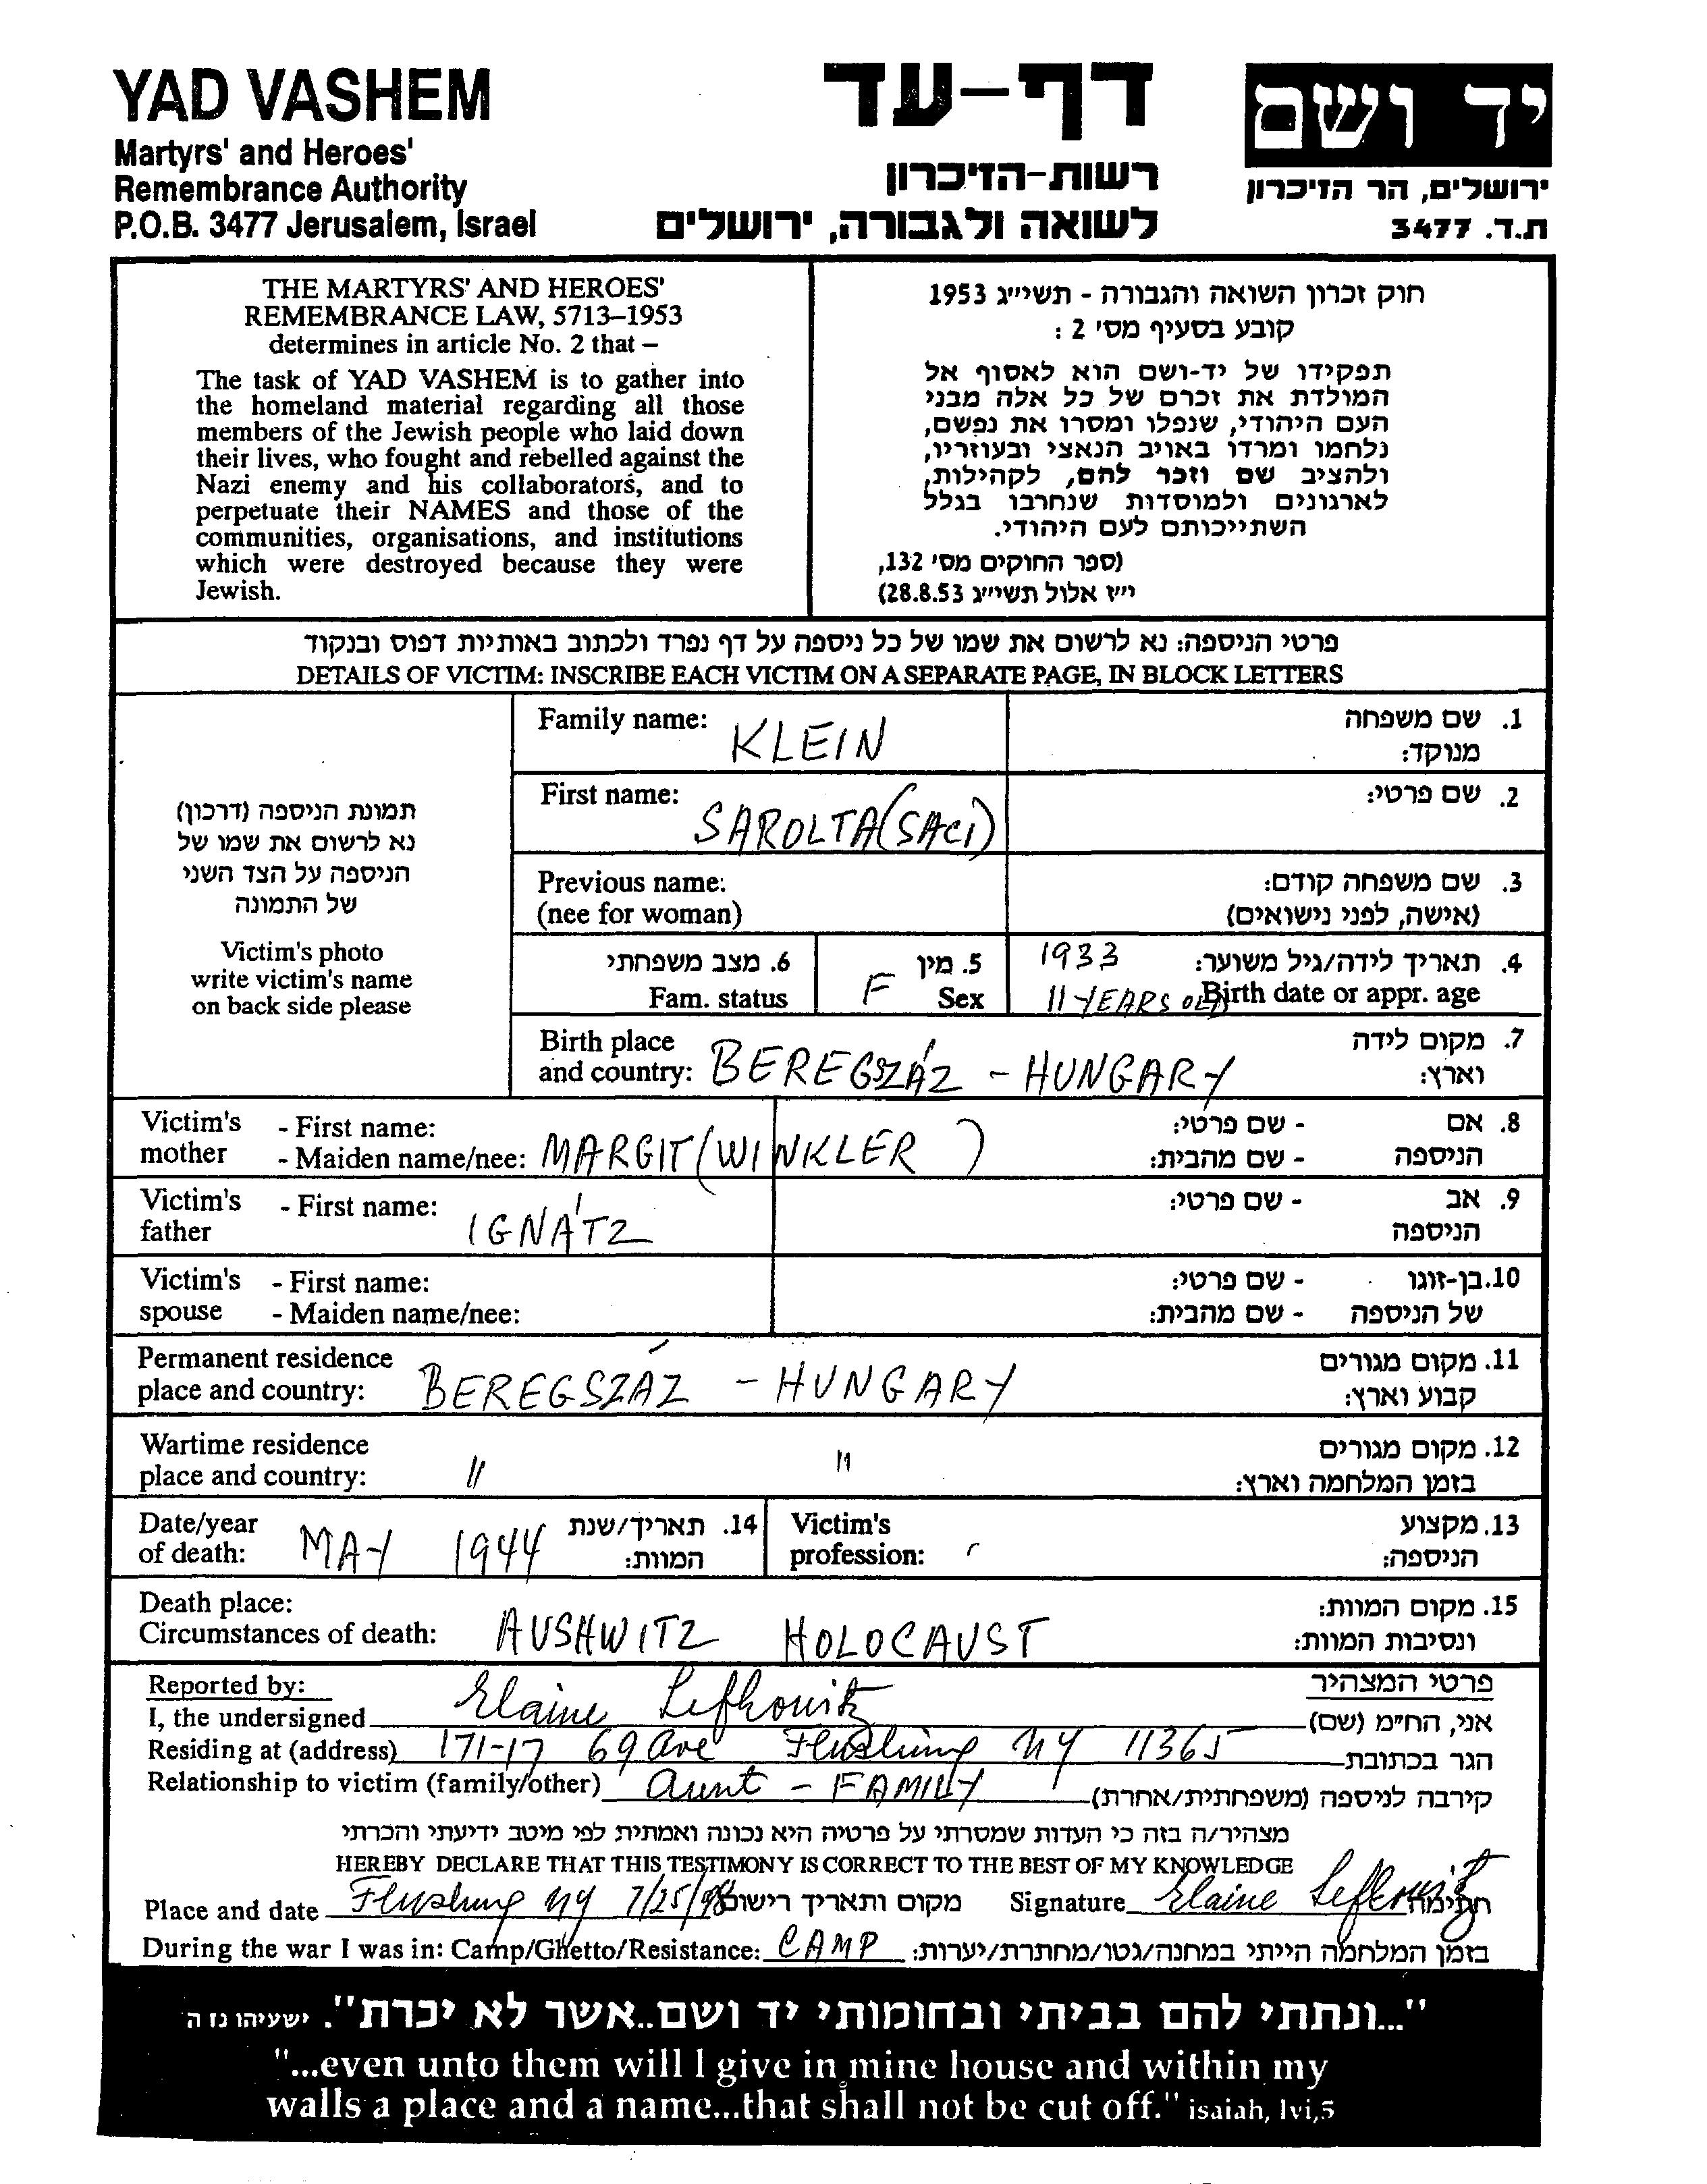 YAD VASHEM
Martyrs' and Heroes'
Remembrance Authority
P.O.B. 3477 Jerusalem, Israel
דף-עד
רשות-הזיכרון
לשואה ולגבורה, ירושלים
יד ושם
ירושלים, הר הזיכרון
ת.ד. 3477
THE MARTYRS' AND HEROES'
REMEMBRANCE LAW, 5713–1953
determines in article No. 2 that –
The task of YAD VASHEM is to gather into
the homeland material regarding all those
members of the Jewish people who laid down
their lives, who fought and rebelled against the
Nazi enemy and his collaborators, and to
perpetuate their NAMES and those of the
communities, organisations, and institutions
which were destroyed because they were
Jewish.
חוק זכרון השואה והגבורה - תשי"ג 1953
קובע בסעיף מס' 2 :
תפקידו של יד-ושם הוא לאסוף אל
המולדת את זכרם של כל אלה מבני
העם היהודי, שנפלו ומסרו את נפשם,
נלחמו ומרדו באויב הנאצי ובעוזריו,
ולהציב שם וזכר להם, לקהילות,
לארגונים ולמוסדות שנחרבו בגלל
השתייכותם לעם היהודי.
(ספר החוקים מס' 132,
י"ז אלול תשי"ג 28.8.53)
פרטי הניספה: נא לרשום את שמו של כל ניספה על דף נפרד ולכתוב באותיות דפוס ובנקוד
DETAILS OF VICTIM: INSCRIBE EACH VICTIM ON A SEPARATE PAGE, IN BLOCK LETTERS
תמונת הניספה (דרכון)
נא לרשום את שמו של
הניספה על הצד השני
של התמונה
Victim's photo
write victim's name
on back side please
Family name: KLEIN 1. שם משפחה
מנוקד:
First name: SAROLTA (SACI) 2. שם פרטי:
Previous name: 3. שם משפחה קודם:
(nee for woman) (אישה, לפני נישואים)
6. מצב משפחתי 5. מין 1933 4. תאריך לידה/גיל משוער:
Fam. status F Sex 11 YEARS OLD Birth date or appr. age
Birth place 7. מקום לידה
and country: BEREGSZÁZ - HUNGARY וארץ:
Victim's - First name: - שם פרטי: 8. אם
mother - Maiden name/nee: MARGIT (WINKLER ) - שם מהבית: הניספה
Victim's - First name: - שם פרטי: 9. אב
father IGNÁTZ הניספה
Victim's - First name: - שם פרטי: 10. בן-זוגו
spouse - Maiden name/nee: - שם מהבית: של הניספה
Permanent residence 11. מקום מגורים
place and country: BEREGSZÁZ - HUNGARY קבוע וארץ:
Wartime residence 12. מקום מגורים
place and country: " " בזמן המלחמה וארץ:
Date/year 14. תאריך/שנת Victim's 13. מקצוע
of death: MAY 1944 המוות: profession: הניספה:
Death place: 15. מקום המוות:
Circumstances of death: AUSHWITZ HOLOCAUST ונסיבות המוות:
Reported by: פרטי המצהיר
I, the undersigned Elaine Lefkowitz אני, הח"מ (שם)
Residing at (address) 171-17 69 ave Flushing NY 11365 הגר בכתובת
Relationship to victim (family/other) aunt - FAMILY קירבה לניספה (משפחתית/אחרת)
מצהיר/ה בזה כי העדות שמסרתי על פרטיה היא נכונה ואמתית לפי מיטב ידיעתי והכרתי
HEREBY DECLARE THAT THIS TESTIMONY IS CORRECT TO THE BEST OF MY KNOWLEDGE
Place and date Flushing NY 7/25/98 מקום ותאריך רישום Signature Elaine Lefkowitz חתימה
During the war I was in: Camp/Ghetto/Resistance: CAMP בזמן המלחמה הייתי במחנה/גטו/מחתרת/יערות:
"...ונתתי להם בביתי ובחומותי יד ושם..אשר לא יכרת". ישעיהו נז ה
"...even unto them will I give in mine house and within my
walls a place and a name...that shall not be cut off." isaiah, lvi,5